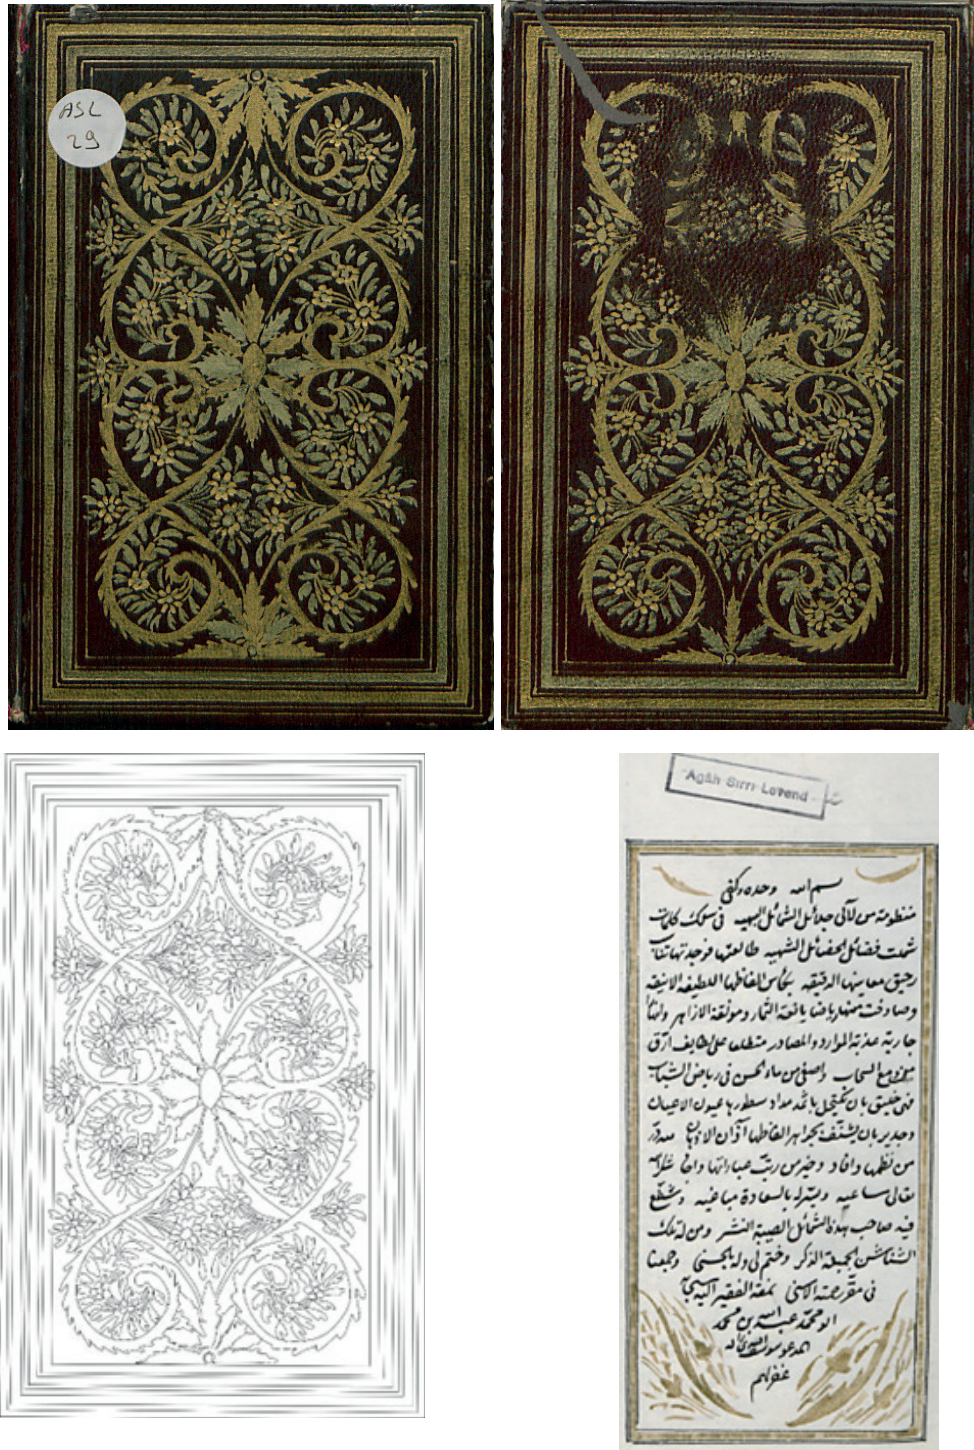 ASL
29
Agâh Sırrı Levend
بسم الله وحده وكفى
منظومة من لآلى جلائل الشمائل البهيه فى سلك كلمات
شملت فضائل الخصائل الشهيه طالعتها فوجدتها
رحيق معانيها الدقيقه بكأس الفاظها اللطيفه الانيقه
وصادفت منها رياضا يانعة الثمار ومونقة الازاهر وانهارا
جارية عذبة الموارد والمصادر متطلعا على لطايف ارق
من دمع السحاب واصفى من ماء الحسن فى رياض الشباب
فهى خليق بان تكتحل باثمد مداد سطورها عيون الاعيان
وجدير بان يشنف بجواهر الفاظها آذان الاذهان
من نظمها وافاد وخير من رتب عباراتها
تعالى مساعيه ويسر له بالسعادة مباغيه
فيه صاحب هذه الشمائل الطيبة النشر ومن له تلك
الجميلة الذكر وختم لى وله بالحسنى وجمعنا
فى مقر رحمته الاسنى نمقه الفقير اليه
ابو محمد عبد الله بن محمد
المدعو
غفر لهم